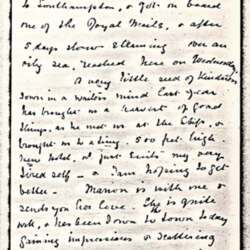 to Southampton, & got on board
one of the Royal Mails, & after
5 days slow steaming over an
oily sea, reached here on Wednesday
A very little seed of kindness
down in a writer's mind last year
has brought us a harvest of good
things, as he met us at the Ship, &
brought us to a living, 500 feet high
New Hotel, & just write my very
tired self — & am hoping to get
better — Manon is with me &
sends you her love. She is quite
well, & has been down to town today
gaining impressions & scattering